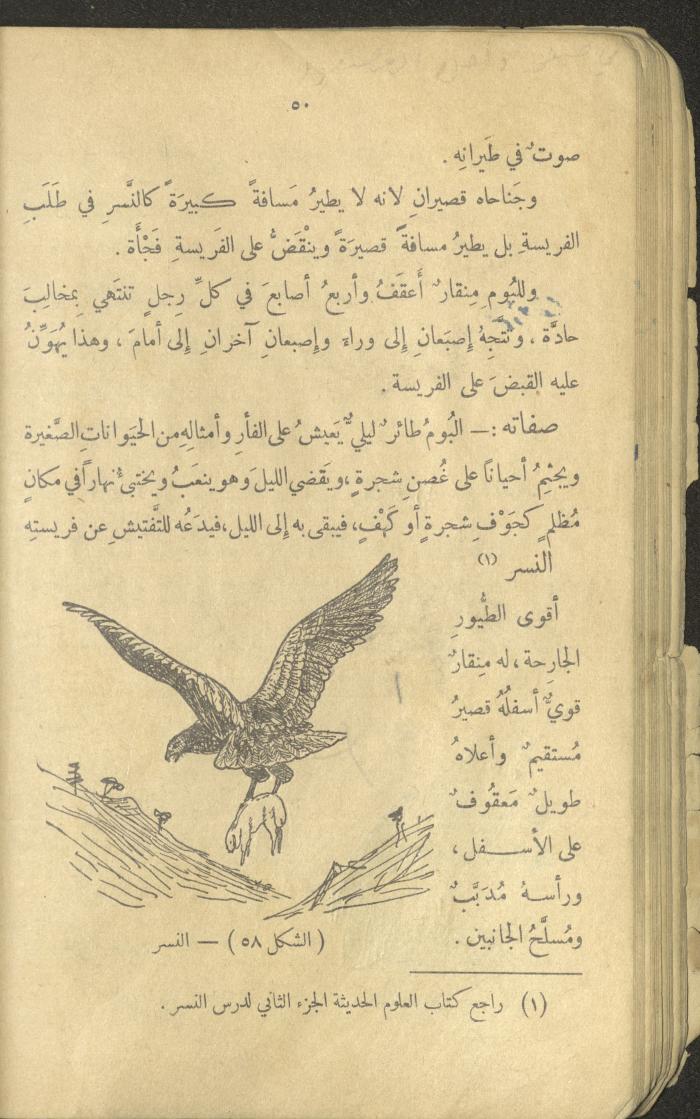 ٥٠
صوتٌ في طَيَرانِه .
وجَناحاه قصيرانِ لانه لا يطيرُ مَسافةً كبيرَةً كالنَّسرِ في طَلَبِ
الفريسةِ بل يطيرُ مسافةً قصيرَةً وينْقَضُّ على الفَريسةِ فَجْأَة .
وللبُومِ مِنقارٌ أَعقَفُ وأربعُ أصابعَ في كلِّ رِجلٍ تنتَهي بِمخالِبَ
حادَّة ، وتتَّجِهُ إصبَعانِ إلى وراءَ وإصبعانِ آخرانِ إلى أمامَ ، وهذا يُهَوِّنُ
عليه القبضَ على الفريسة .
صفاته :— البُومُ طائرٌ ليليٌّ يَعيشُ على الفأرِ وأمثالِهِ من الحَيَواناتِ الصَّغيرة
ويجثِمُ أحياناً على غُصنِ شجرةٍ ، ويَقضي الليلَ وهو ينعَبُ ويختبىُ نهاراً في مكانٍ
مُظلمٍ كجَوْفِ شجرةٍ أو كَهْفٍ ، فيبقى به إلى الليل ، فيدَعُه للتَّفتيشِ عن فريستِه
النسر (١)
أقوى الطُّيورِ
الجارِحة ، له مِنقارٌ
قويٌّ أسفلُهُ قصيرٌ
مُستقيمٌ وأعلاهُ
طويلٌ مَعقُوفٌ
على الأسفل ،
ورأسهُ مُدَبَّبٌ
ومُسلَّحُ الجانبين .
( الشكل ٥٨ ) — النسر
(١) راجع كتاب العلوم الحديثة الجزء الثاني لدرس النسر .